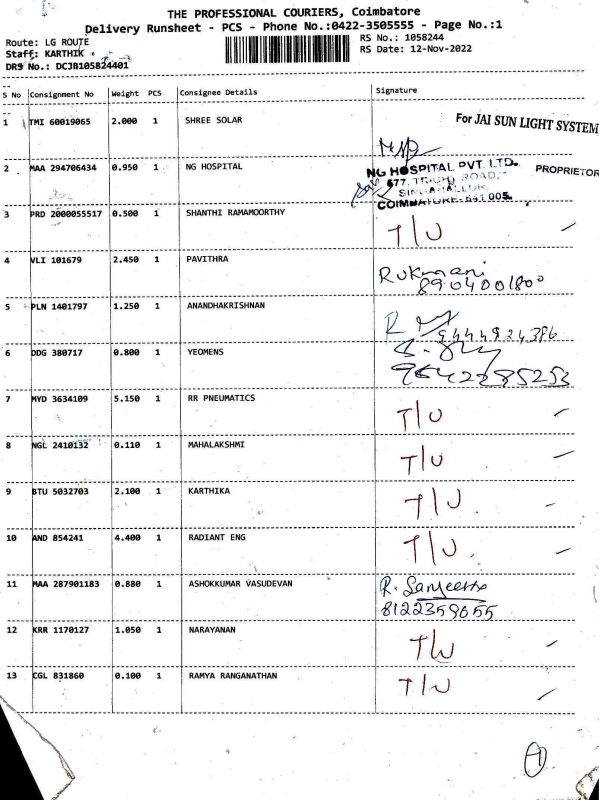 THE PROFESSIONAL COURIERS, Coimbatore
Delivery Runsheet - PCS - Phone No.:0422-3505555 - Page No.:1
Route: LG ROUTE
RS No.: 1058244
Staff: KARTHIK
RS Date: 12-Nov-2022
DRS No.: DCJB105824401
S No Consignment No Weight PCS Consignee Details Signature
1 TMI 60019065 2.000 1 SHREE SOLAR For JAI SUN LIGHT SYSTEM
2 MAA 294706434 0.950 1 NG HOSPITAL NG HOSPITAL PVT. LTD. PROPRIETOR
677, TRICHY ROAD,
SINGANALLUR,
COIMBATORE-641 005.
3 PRD 2000055517 0.500 1 SHANTHI RAMAMOORTHY T/U
4 VLI 101679 2.450 1 PAVITHRA Rukmani
8904001800
5 PLN 1401797 1.250 1 ANANDHAKRISHNAN
9444924386
6 DDG 380717 0.800 1 YEOMENS
9842285253
7 MYD 3634109 5.150 1 RR PNEUMATICS T/U
8 NGL 2410132 0.110 1 MAHALAKSHMI T/U
9 BTU 5032703 2.100 1 KARTHIKA T/U
10 AND 854241 4.400 1 RADIANT ENG T/U
11 MAA 287901183 0.880 1 ASHOKKUMAR VASUDEVAN R. Sanjeetha
8122359655
12 KRR 1170127 1.050 1 NARAYANAN T/U
13 CGL 831860 0.100 1 RAMYA RANGANATHAN T/U